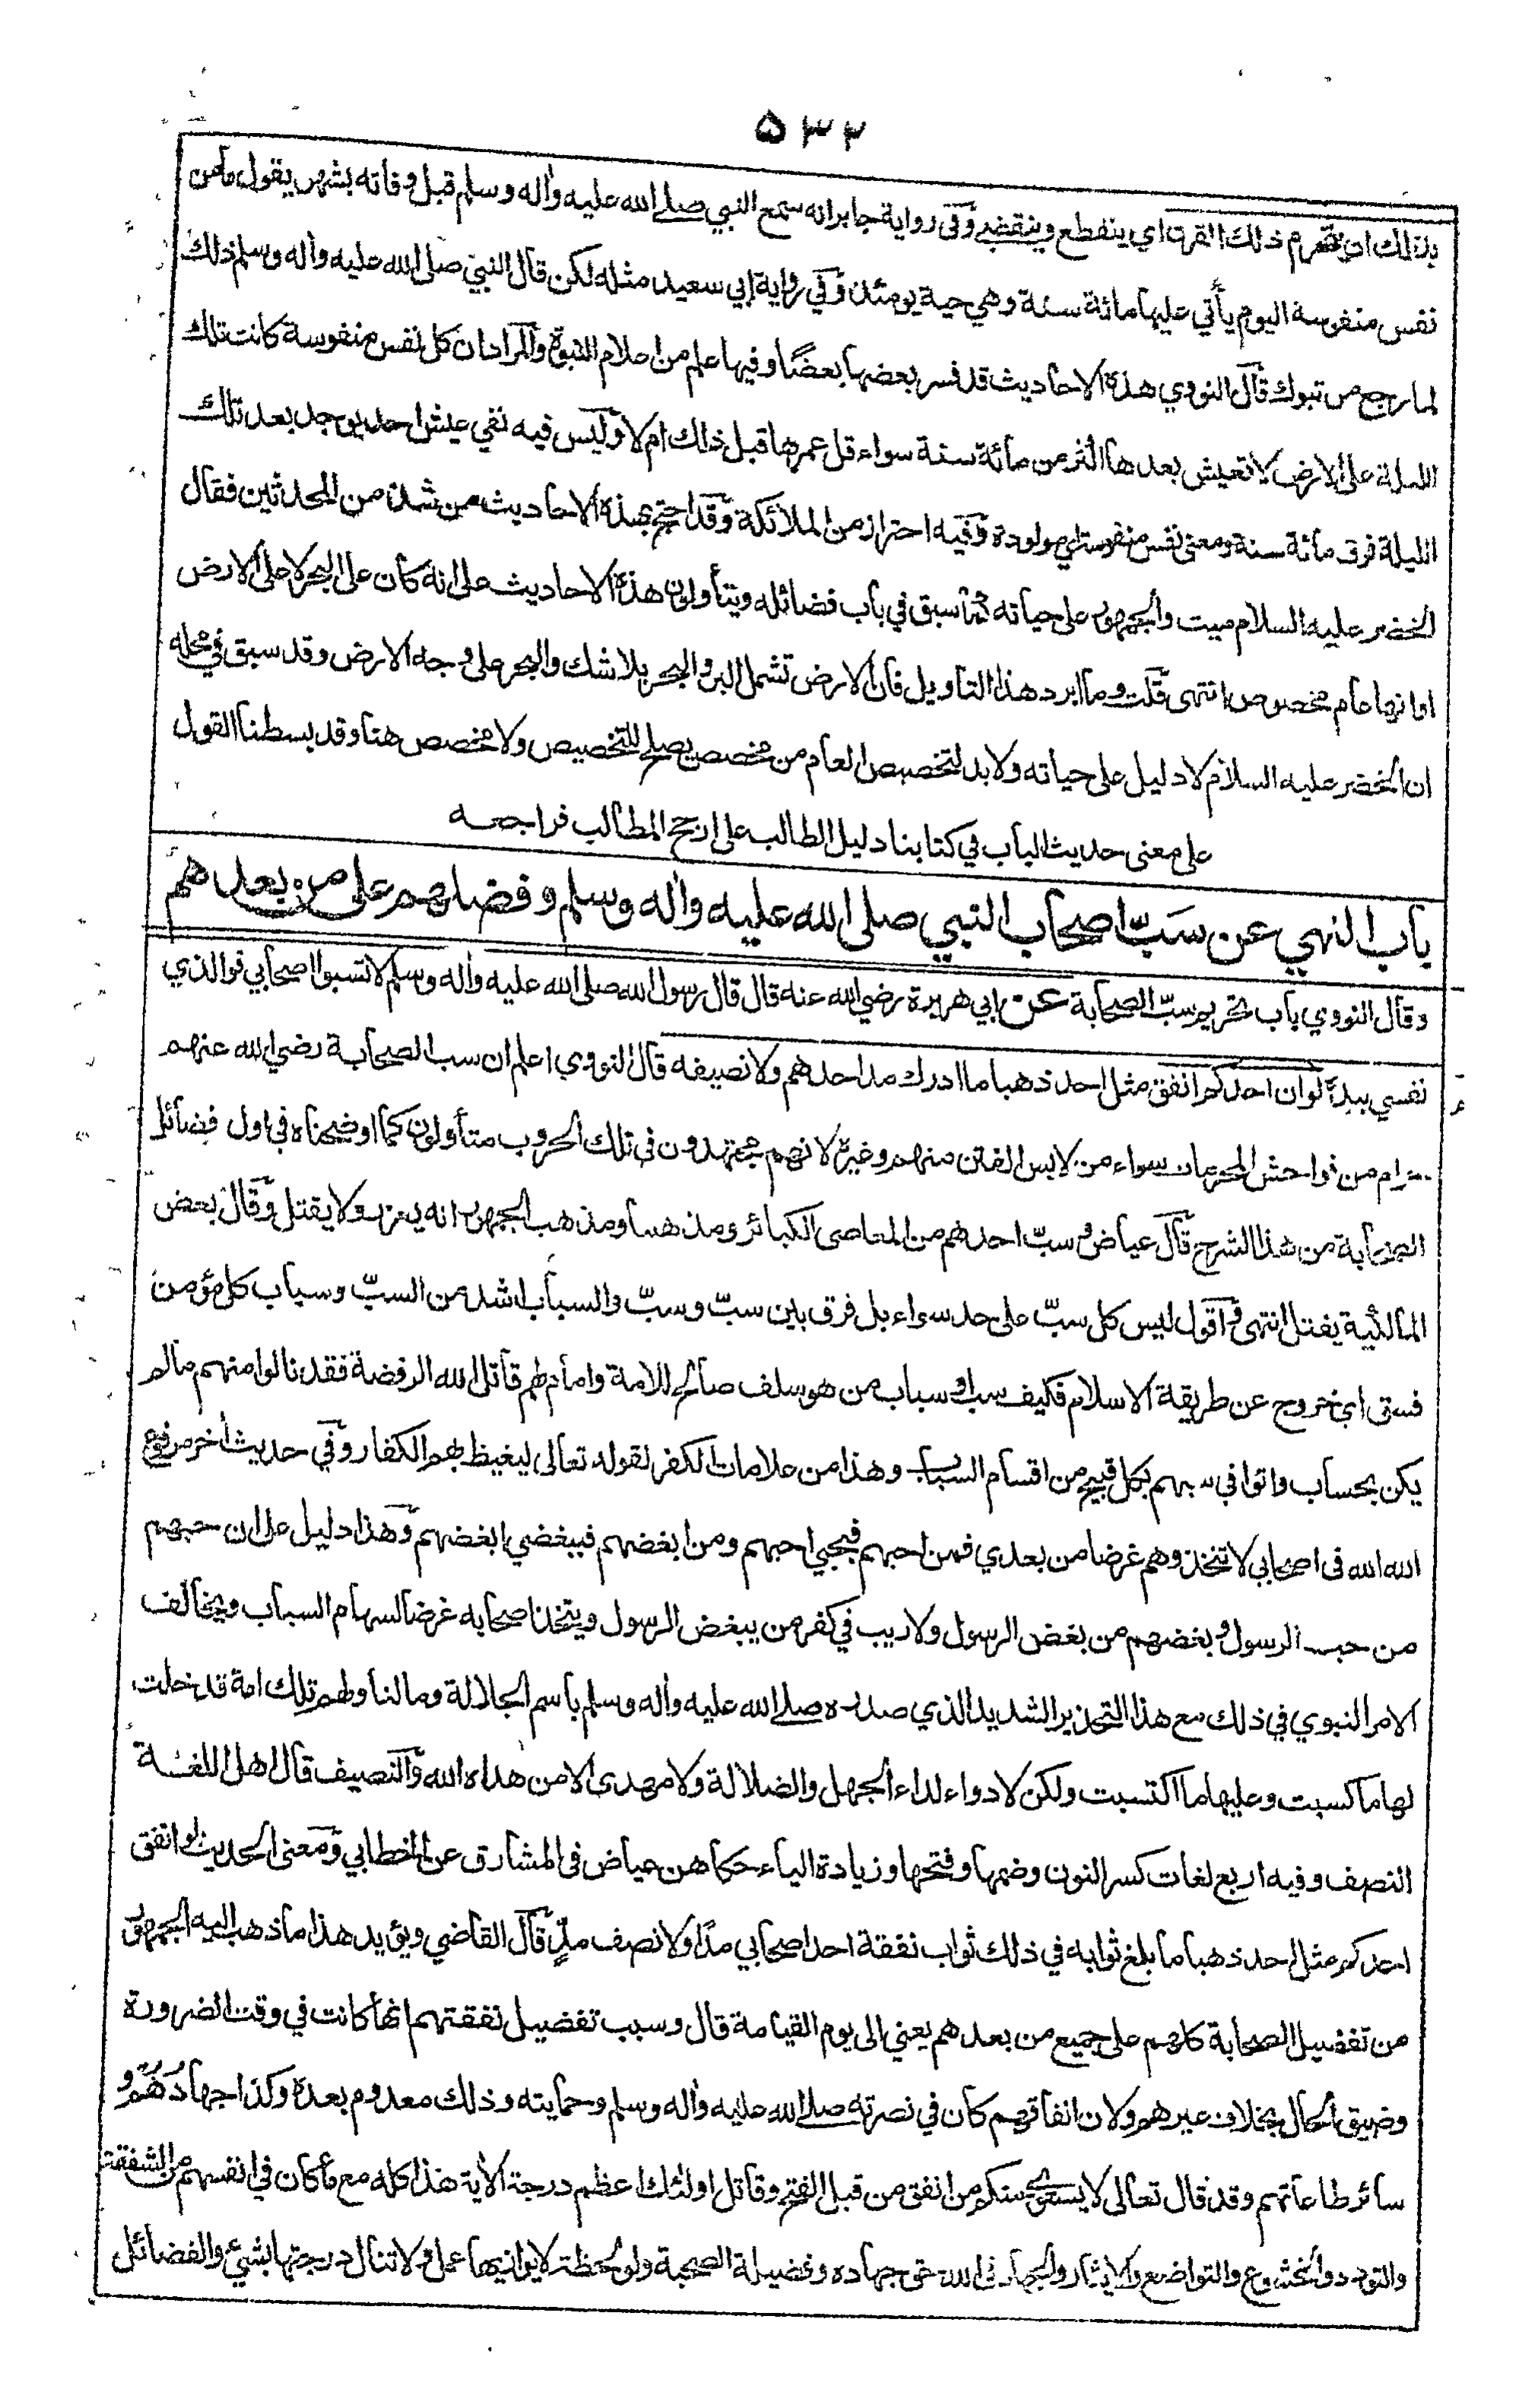 ۵۳۲
بذلك ان ينخرم ذلك القرن اي ينقطع وينقضي وفي رواية جابر انه سمع النبي صلى الله عليه واله وسلم قبل وفاته بشهر يقول ما من
نفس منفوسة اليوم يأتي عليها مائة سنة وهي حية يومئذ وفي رواية ابي سعيد مثله لكن قال النبي صلى الله عليه واله وسلم ذلك
لما رجع من تبوك قال النووي هذه الاحاديث قد فسر بعضها بعضًا وفيها علم من اعلام النبوة والمراد ان كل نفس منفوسة كانت تلك
الليلة على الارض لا تعيش بعدها اكثر من مائة سنة سواء قل عمرها قبل ذلك ام لا وليس فيه نفي عيش احد يوجد بعد تلك
الليلة فوق مائة سنة ومعنى نفس منفوسة اي مولودة وفيه احتراز من الملائكة وقد احتج بهذه الاحاديث من شذ من المحدثين فقال
الخضر عليه السلام ميت والجمهور على حياته كما سبق في باب فضائله ويتأولون هذه الاحاديث على انه كان على البحر لا على الارض
او انها عام مخصوص انتهى قلت وما ابرد هذا التاويل فان الارض تشمل البر والبحر بلا شك والبحر على وجه الارض وقد سبق في محله
ان الخضر عليه السلام لا دليل على حياته ولا بد لتخصيص العام من مخصص يصلح للتخصيص ولا مخصص هنا وقد بسطنا القول
على معنى حديث الباب في كتابنا دليل الطالب على ارجح المطالب فراجعه
باب النهي عن سَبّ اصحاب النبي صلى الله عليه واله وسلم وفضلهم على من بعدهم
وقال النووي باب تحريم سبّ الصحابة عن ابي هريرة رضي الله عنه قال قال رسول الله صلى الله عليه واله وسلم لا تسبوا اصحابي فوالذي
نفسي بيده لو ان احدكم انفق مثل احد ذهبا ما ادرك مد احدهم ولا نصيفه قال النووي اعلم ان سب الصحابة رضي الله عنهم
حرام من فواحش المحرمات سواء من لابس الفتن منهم وغيره لانهم مجتهدون في تلك الحروب متأولون كما اوضحناه في اول فضائل
الصحابة من هذا الشرح قال عياض وسبّ احدهم من المعاصي الكبائر ومذهبنا ومذهب الجمهور انه يعزر ولا يقتل وقال بعض
المالكية يقتل انتهى واقول ليس كل سبّ على حد سواء بل فرق بين سبّ وسبّ والسباب اشد من السبّ وسباب كل مؤمن
فسق اي خروج عن طريقة الاسلام فكيف سب او سباب من هو سلف صالح للامة وامام لهم قاتل الله الرفضة فقد نالوا منهم ما لم
يكن بحساب واتوا في سبهم بكل قبيح من اقسام السباب وهذا من علامات الكفر لقوله تعالى ليغيظ بهم الكفار وفي حديث اخر مرفوع
الله الله في اصحابي لا تتخذوهم غرضا من بعدي فمن احبهم فبحبي احبهم ومن ابغضهم فببغضي ابغضهم وهذا دليل على ان حبهم
من حب الرسول وبغضهم من بغض الرسول ولا ريب في كفر من يبغض الرسول ويتخذ اصحابه غرضا لسهام السباب ويخالف
الامر النبوي في ذلك مع هذا التحذير الشديد الذي صدره صلى الله عليه واله وسلم باسم الجلالة وما لنا ولهم تلك امة قد خلت
لها ما كسبت وعليها ما اكتسبت ولكن لا دواء لداء الجهل والضلالة ولا مهدى الا من هداه الله والنصيف قال اهل اللغة
النصف وفيه اربع لغات كسر النون وضمها وفتحها وزيادة الياء حكاهن عياض في المشارق عن الخطابي ومعنى الحديث لو انفق
احدكم مثل احد ذهبا ما بلغ ثوابه في ذلك ثواب نفقة احد اصحابي مدًا ولا نصف مدٍّ قال القاضي ويؤيد هذا ما ذهب اليه الجمهور
من تفضيل الصحابة كلهم على جميع من بعدهم يعني الى يوم القيامة قال وسبب تفضيل نفقتهم انها كانت في وقت الضرورة
وضيق الحال بخلاف غيرهم ولان انفاقهم كان في نصرته صلى الله عليه واله وسلم وحمايته وذلك معدوم بعده وكذا جهادُهُم و
سائر طاعاتهم وقد قال تعالى لا يستوي منكم من انفق من قبل الفتح وقاتل اولئك اعظم درجة الأية هذا كله مع ما كان في انفسهم من الشفقة
والتودد والخشوع والتواضع والايثار والجهاد في الله حق جهاده وفضيلة الصحبة ولو لحظة لا يوازيها عمل ولا تنال درجتها بشيء والفضائل